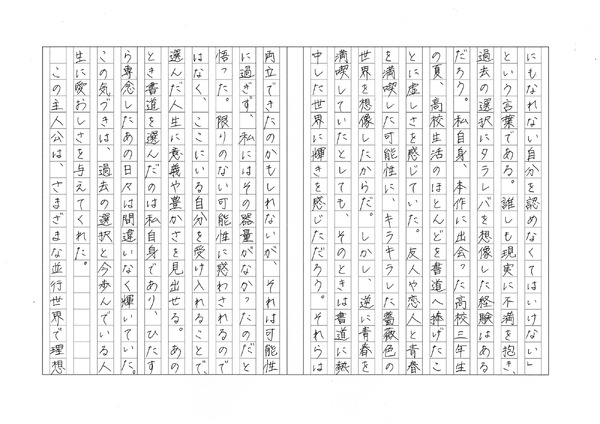 にもなれない自分を認めなくてはいけない」
という言葉である。誰しも現実に不満を抱き、
過去の選択にタラレバを想像した経験はある
だろう。私自身、本作に出会った高校三年生
の夏、高校生活のほとんどを書道へ捧げたこ
とに虚しさを感じていた。友人や恋人と青春
を満喫した可能性に、キラキラした薔薇色の
世界を想像したからだ。しかし、逆に青春を
満喫していたとしても、そのときは書道に熱
中した世界に輝きを感じただろう。それらは
両立できたのかもしれないが、それは可能性
に過ぎず、私にはその器量がなかったのだと
悟った。限りのない可能性に惑わされるので
はなく、ここにいる自分を受け入れることで、
選んだ人生に意義や豊かさを見出せる。あの
とき書道を選んだのは私自身であり、ひたす
ら専念したあの日々は間違いなく輝いていた。
この気づきは、過去の選択と今歩んでいる人
生に愛おしさを与えてくれた。
この主人公は、さまざまな並行世界で理想